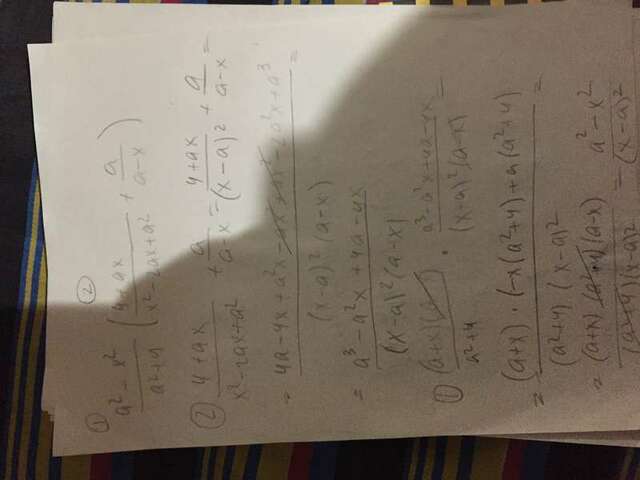 ① ②
(a² - x²)/(a² + 4) ((4 + ax)/(x² - 2ax + a²) + a/(a - x))
② (4 + ax)/(x² - 2ax + a²) + a/(a - x) = (4 + ax)/(x - a)² + a/(a - x) =
= (4a - 4x + a²x - ax² + ax² - 2a²x + a³)/((x - a)² (a - x)) =
= (a³ - a²x + 4a - 4x)/((x - a)² (a - x))
① (a + x)(a - x)/(a² + 4) · (a³ - a²x + 4a - 4x)/((x - a)² (a - x)) =
= (a + x) · (-x(a² + 4) + a(a² + 4)/((a² + 4) (x - a)²) =
= (a + x) (a² + 4) (a - x)/((a² + 4)(x - a)²) = (a² - x²)/(x - a)²